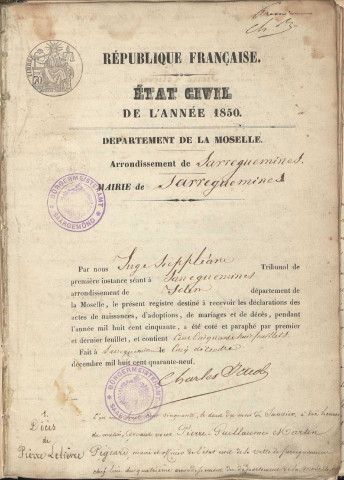 RÉPUBLIQUE FRANÇAISE.
ÉTAT CIVIL
DE L'ANNÉE 1850.
DEPARTEMENT DE LA MOSELLE.
Arrondissement de Sarreguemines.
MAIRIE de Sarreguemines
BÜRGERMEISTERAMT
SAARGEMÜND
Par nous Juge Suppléant Tribunal de
première instance séant à Sarreguemines
arrondissement de département de
la Moselle, le présent registre destiné à recevoir les déclarations des
actes de naissances, d'adoptions, de mariages et de décès, pendant
l'année mil huit cent cinquante, a été coté et paraphé par premier
et dernier feuillet, et contient Cent Cinquante huit feuillets.
Fait à Sarreguemines le Cinq décembre
décembre mil huit cent quarante-neuf.
BÜRGERMEISTERAMT
Charles
1.
Décès
de
Pierre Lelièvre
L'an mil huit cent cinquante, le deux du mois de Janvier, à dix heures
du matin, devant nous Pierre Guillaume
maire et officier de l'état civil de la ville de Sarreguemines
chef lieu du quatrième arrondissement du département de la Moselle